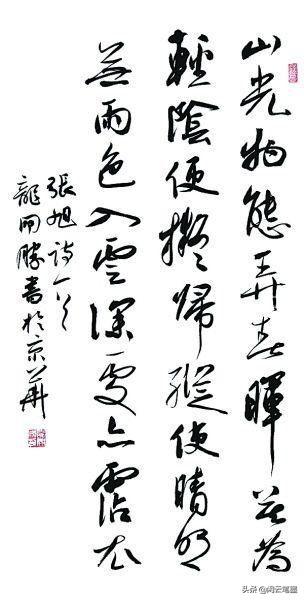 山光物態弄春暉莫為
輕陰便擬歸縱使晴明
無雨色入雲深處亦霑衣
張旭詩一首
龍開勝書於京華
头条 @闲云笔墨